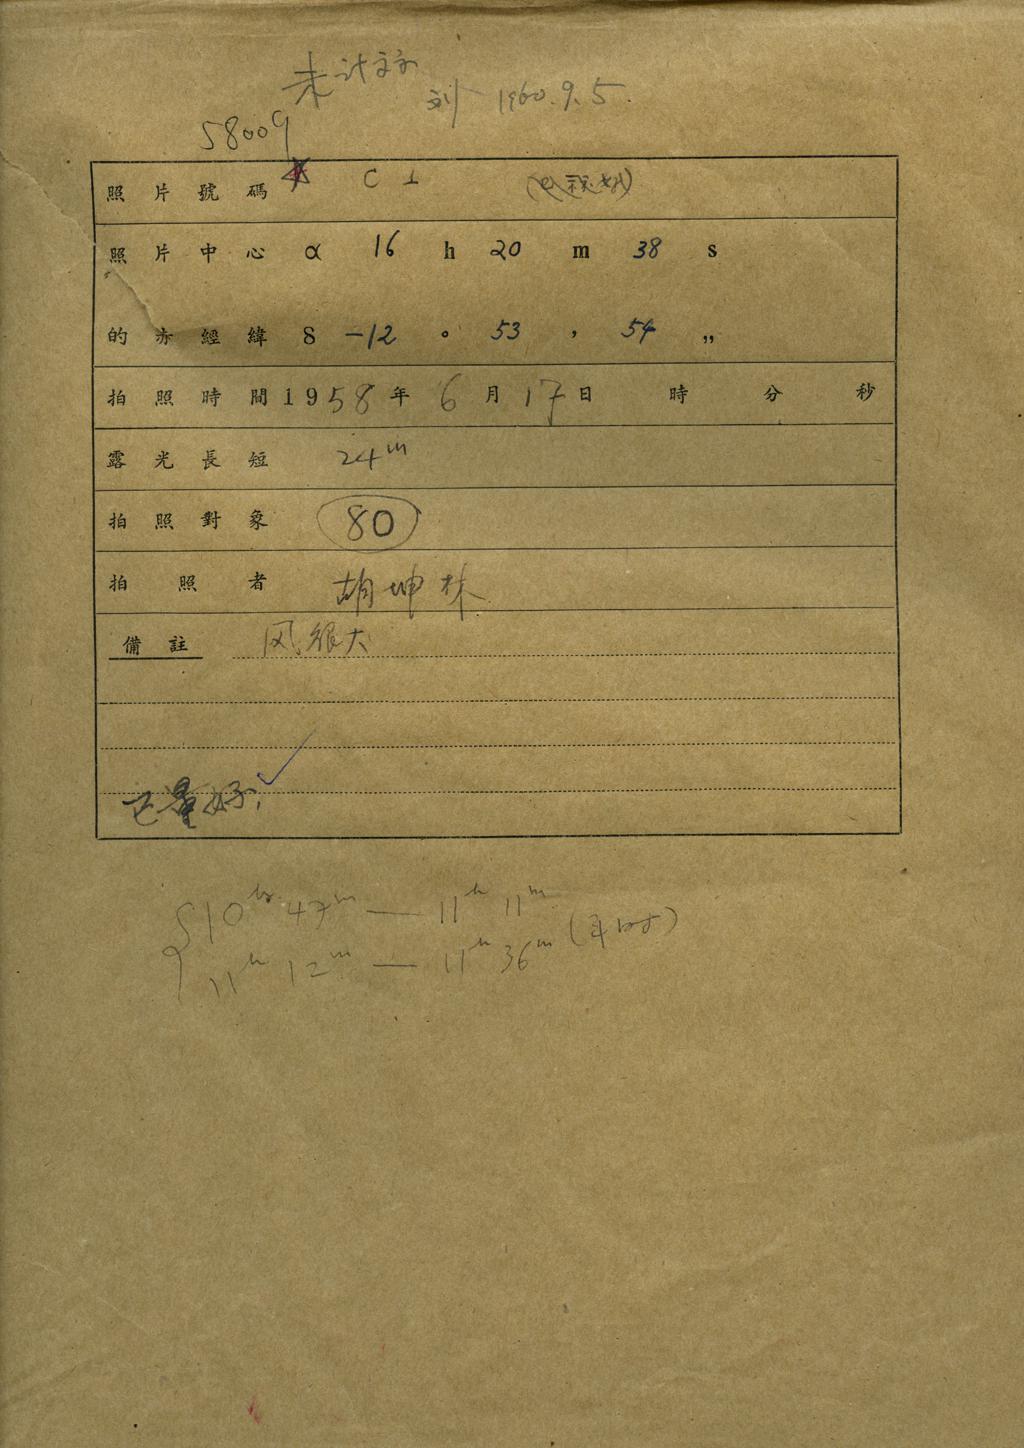 未计算
刘 1960.9.5.
58009
照片號碼 C1
照片中心 α 16 h 20 m 38 s
的赤經緯 δ -12 ° 53 ′ 54 ″
拍照時間 1958年 6月 17日 時 分 秒
露光長短 24m
拍照對象 80
拍照者 胡坤林
備註 风很大
已量好,
10h 47m — 11h 11m
11h 12m — 11h 36m